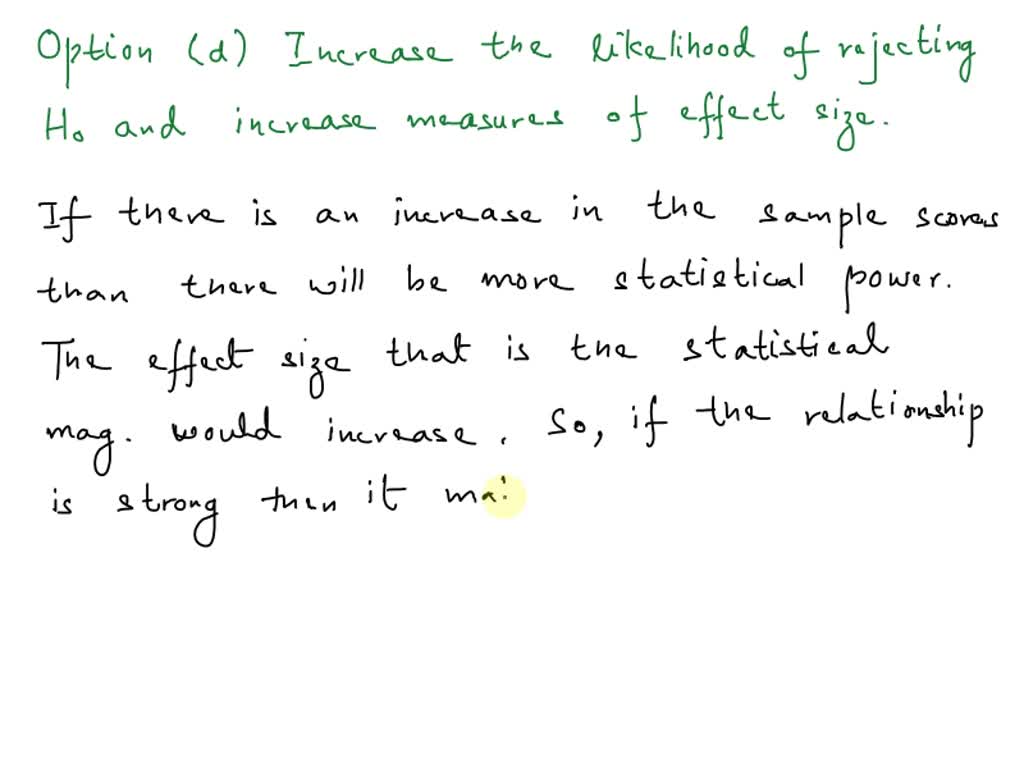 Option (d) Increase the likelihood of rejecting
Ho and increase measures of effect size.
If there is an increase in the sample scores
than there will be more statistical power.
The effect size that is the statistical
mag. would increase. So, if the relationship
is strong then it ma